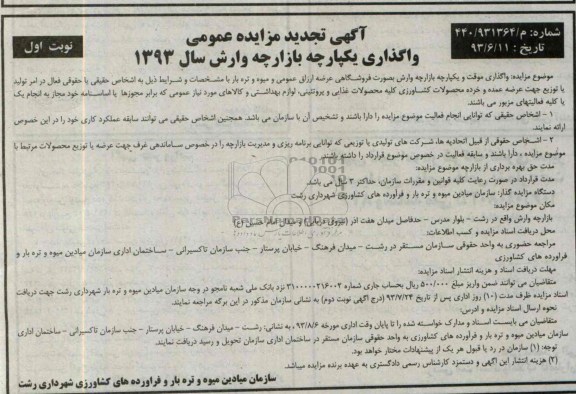 شماره: م/۴۴۰/۹۳۱۳۶۴
تاریخ: ۹۳/۶/۱۱
آگهی تجدید مزایده عمومی
واگذاری یکپارچه بازارچه وارش سال ۱۳۹۳
نوبت اول
موضوع مزایده: واگذاری موقت و یکپارچه بازارچه وارش بصورت فروشگاهی عرضه ارزاق عمومی و میوه و تره بار با مشخصات و شرایط ذیل به اشخاص حقیقی یا حقوقی فعال در امر تولید
یا توزیع جهت عرضه عمده و خرده محصولات کشاورزی کلیه محصولات غذایی و پروتئینی، لوازم بهداشتی و کالاهای مورد نیاز عمومی که برابر مجوزها یا اساسنامه خود مجاز به انجام یک
یا کلیه فعالیتهای مزبور می باشند.
۱ - اشخاص حقیقی که توانایی انجام فعالیت موضوع مزایده را دارا باشند و تشخیص آن با سازمان می باشد. همچنین اشخاص حقیقی می توانند سابقه عملکرد کاری خود را در این خصوص
ارائه نمایند.
۲ - اشخاص حقوقی از قبیل اتحادیه ها، شرکت های تولیدی یا توزیعی که توانایی برنامه ریزی و مدیریت بازارچه را در خصوص ساماندهی غرف جهت عرضه یا توزیع محصولات مرتبط با
موضوع مزایده ، دارا باشند و سابقه فعالیت در خصوص موضوع قرارداد را داشته باشند.
مدت حق بهره برداری از بازارچه موضوع مزایده:
مدت قرارداد در صورت رعایت کلیه قوانین و مقررات سازمان، حداکثر ۳ سال می باشد.
دستگاه مزایده گذار: سازمان میادین میوه و تره بار و فرآورده های کشاورزی شهرداری رشت
مکان موضوع مزایده:
بازارچه وارش واقع در رشت - بلوار مدرس - حدفاصل میدان هفت آذر و میدان امام حسین (ع)
محل دریافت اسناد مزایده و کسب اطلاعات:
مراجعه حضوری به واحد حقوقی سازمان مستقر در رشت - میدان فرهنگ - خیابان پرستار - جنب سازمان تاکسیرانی - ساختمان اداری سازمان میادین میوه و تره بار و
فراورده های کشاورزی
مهلت دریافت اسناد و هزینه انتشار اسناد مزایده:
متقاضیان می توانند ضمن واریز مبلغ ۵۰۰/۰۰۰ ریال بحساب جاری شماره ۳۱۰۰۰۰۰۲۱۶۰۰۲ نزد بانک ملی شعبه نامجو در وجه سازمان میادین میوه و تره بار شهرداری رشت جهت دریافت
اسناد مزایده ظرف مدت (۱۰) روز اداری پس از تاریخ ۹۳/۷/۲۴ (درج آگهی نوبت دوم) به نشانی سازمان مذکور در این برگه مراجعه نمایند.
نحوه ارسال اسناد مزایده و آدرس:
متقاضیان می بایست اسناد و مدارک خواسته شده را تا پایان وقت اداری مورخه ۹۳/۸/۶ به نشانی: رشت - میدان فرهنگ - خیابان پرستار - جنب سازمان تاکسیرانی - ساختمان اداری
سازمان میادین میوه و تره بار و فرآورده های کشاورزی به واحد حقوقی سازمان مستقر در ساختمان اداری سازمان تحویل و رسید دریافت نمایند.
توجه: (۱) سازمان در رد یا قبول هر یک از پیشنهادات مختار خواهد بود.
(۲) هزینه انتشار این آگهی و دستمزد کارشناس رسمی دادگستری به عهده برنده مزایده میباشد.
سازمان میادین میوه و تره بار و فراورده های کشاورزی شهرداری رشت